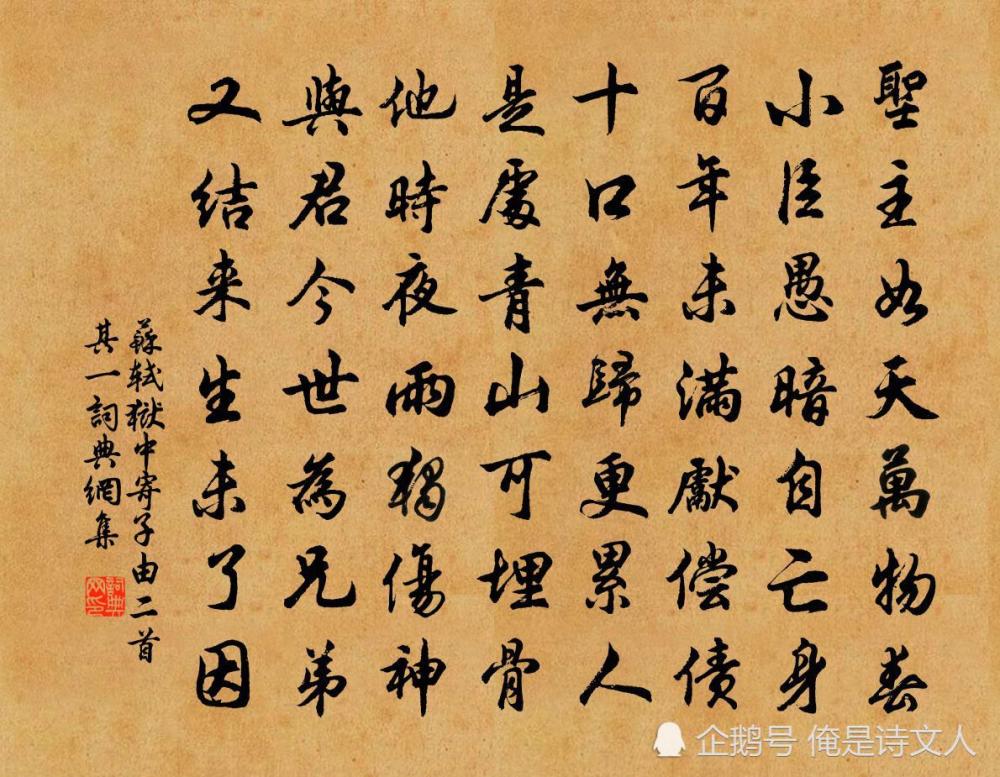 聖主如天萬物春
小臣愚暗自亡身
百年未滿獻偿债
十口無歸更累人
是處青山可埋骨
他時夜雨獨傷神
與君今世為兄弟
又结来生未了因
蘇軾獄中寄子由二首
其一詞典網集
詞典
网印
企鹅号 俺是诗文人